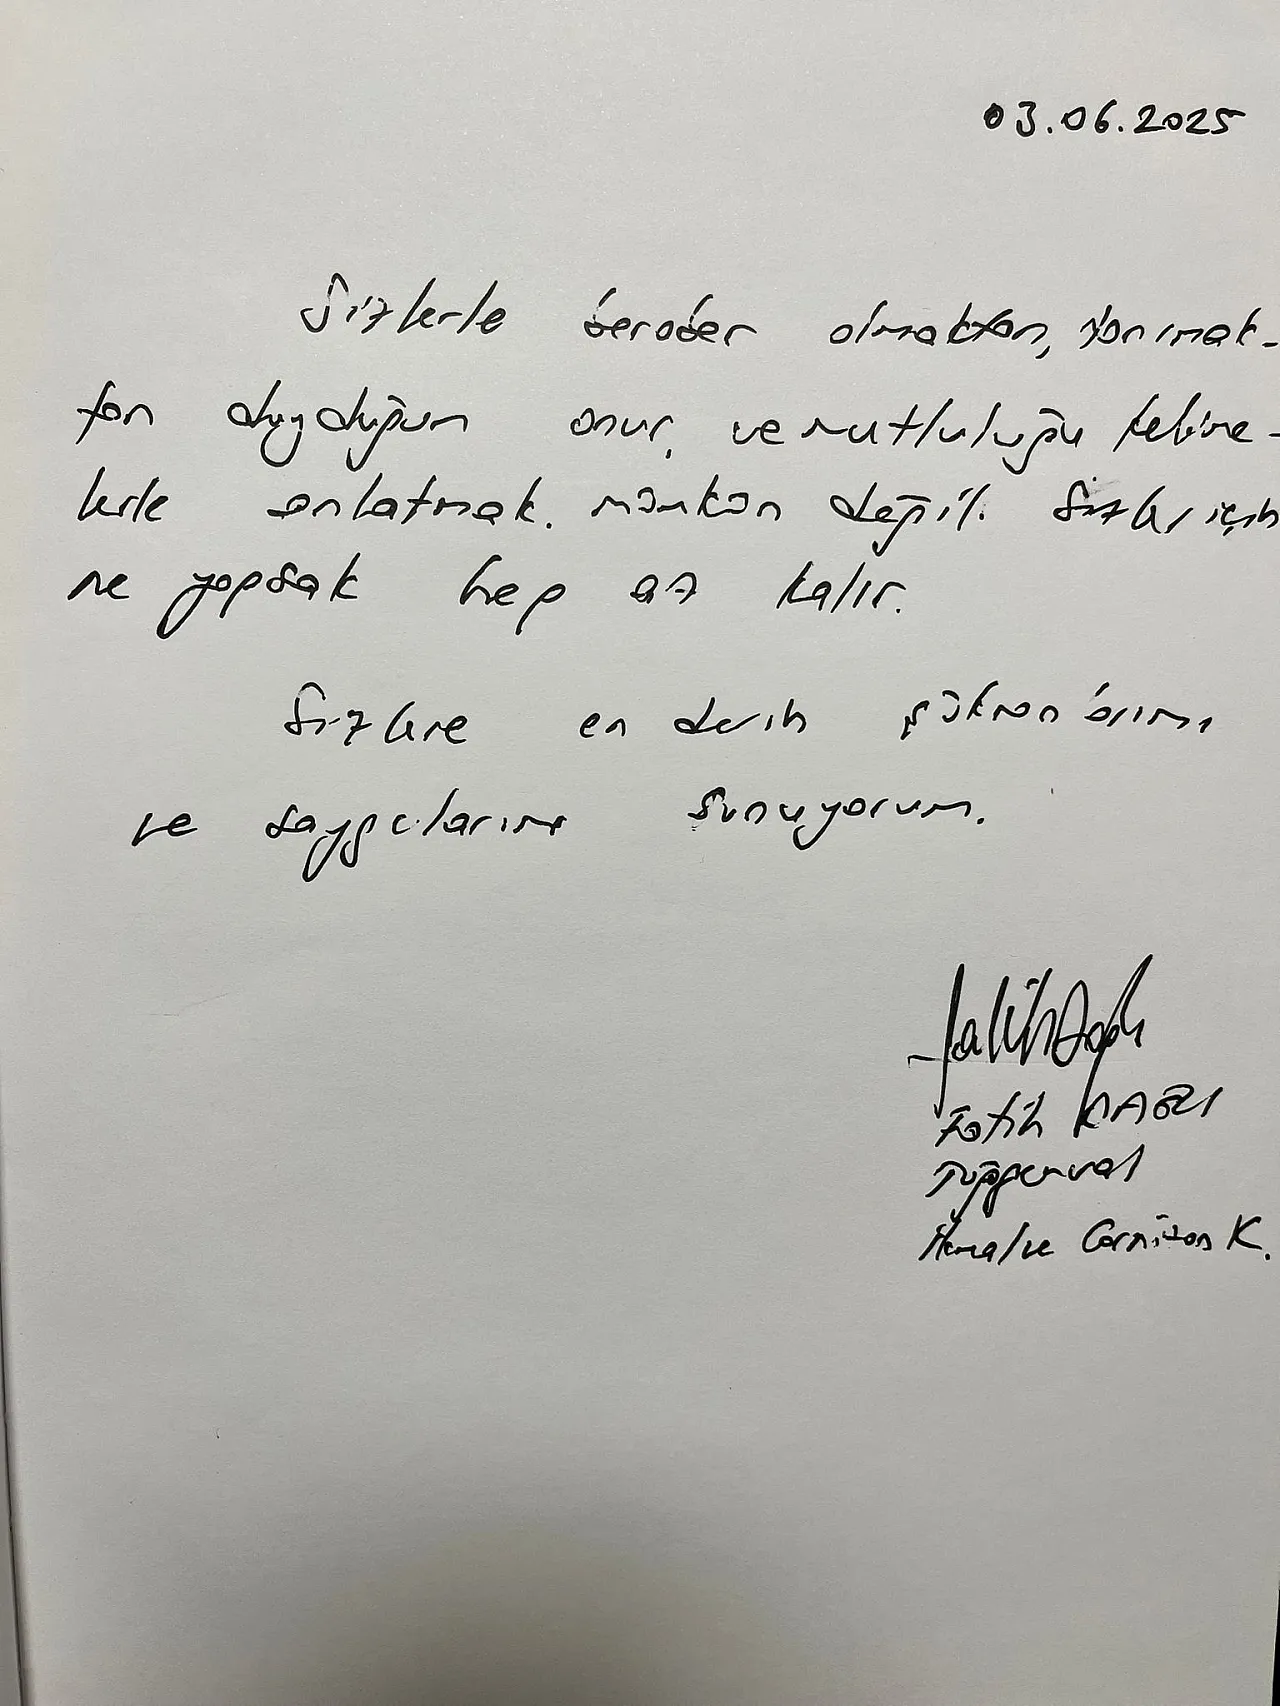 03.06.2025
Sizlerle beraber olmaktan, tanımak-
tan duyduğum onur, ve mutluluğu kelime-
lerle anlatmak. mümkün değil. Sizler için
ne yapsak hep az kalır.
Sizlere en derin şükranlarımı
ve saygılarımı sunuyorum.
Fatih KAĞZI
Tuğgeneral
Garnizon K.